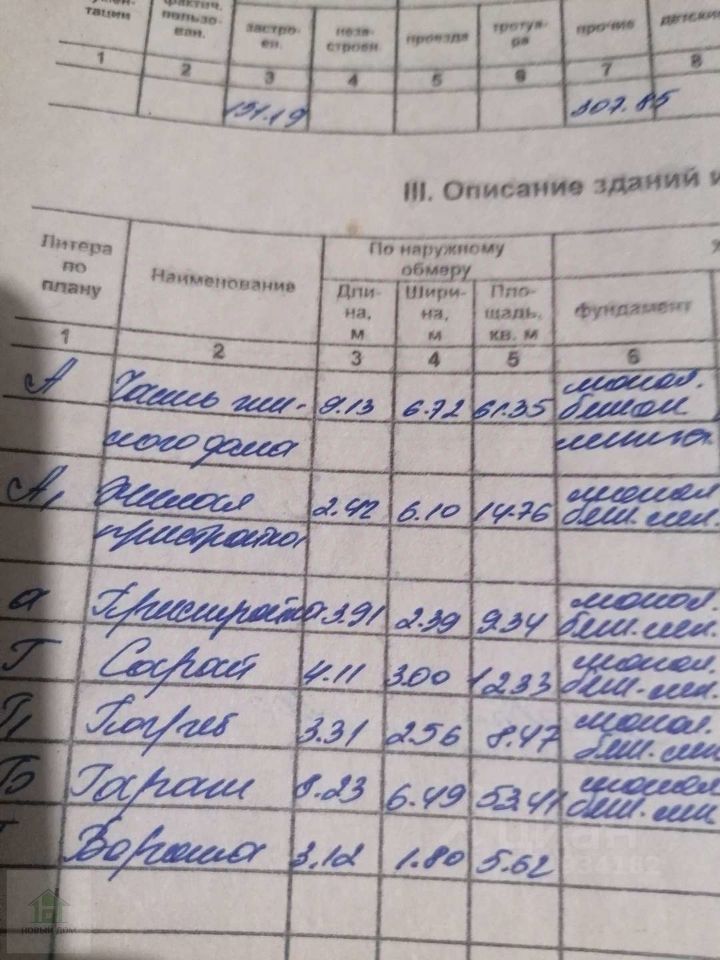 тации
фактич.
пользо-
ван.
застро-
ен.
неза-
строен.
проезда
тротуа-
ра
прочие
детски
1 2 3 4 5 6 7 8
151.19 307.85
III. Описание зданий и
Литера
по
плану
Наименование
По наружному
обмеру
Дли-
на,
м
Шири-
на,
м
Пло-
щадь,
кв. м
фундамент
1 2 3 4 5 6
А Часть жи- 9.13 6.72 61.35 монол.
бетон
лого дома
А1 Жилая 2.42 6.10 14.76 монол
бет. лен.
пристройка
а Пристройка 3.91 2.39 9.34 монол.
бет. лен.
Г Сарай 4.11 3.00 12.33 монол.
бет. лен.
Г1 Погреб 3.31 2.56 8.47 монол.
бет. лен
Гараж 8.23 6.49 53.41 монол
бет. лен
Ворота 3.12 1.80 5.62
НОВЫЙ ДОМ